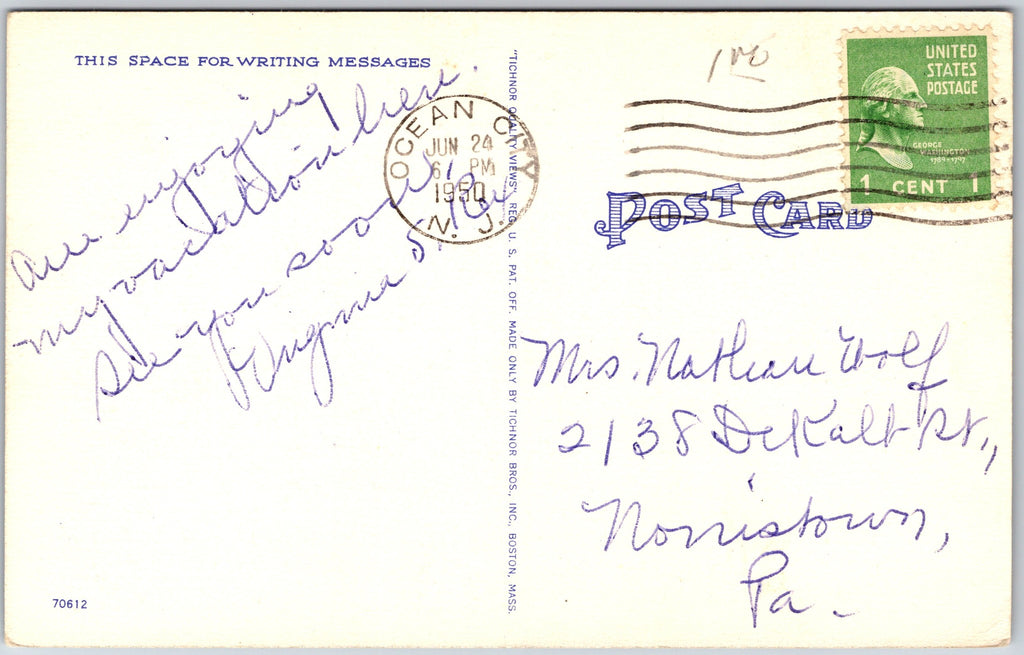 THIS SPACE FOR WRITING MESSAGES
Am enjoying
my vacation here.
See you soon,
Virginia S.
OCEAN CITY
JUN 24
6 PM
1950
N. J.
"TICHNOR QUALITY VIEWS" REG. U. S. PAT. OFF. MADE ONLY BY TICHNOR BROS., INC., BOSTON, MASS.
UNITED
STATES
POSTAGE
GEORGE
WASHINGTON
1789-1797
1 CENT 1
POST CARD
Mrs. Nathan Wolf
2138 DeKalb St.,
Norristown,
Pa.
70612